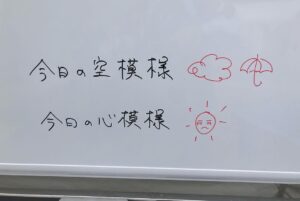 今日の空模様
今日の心模様